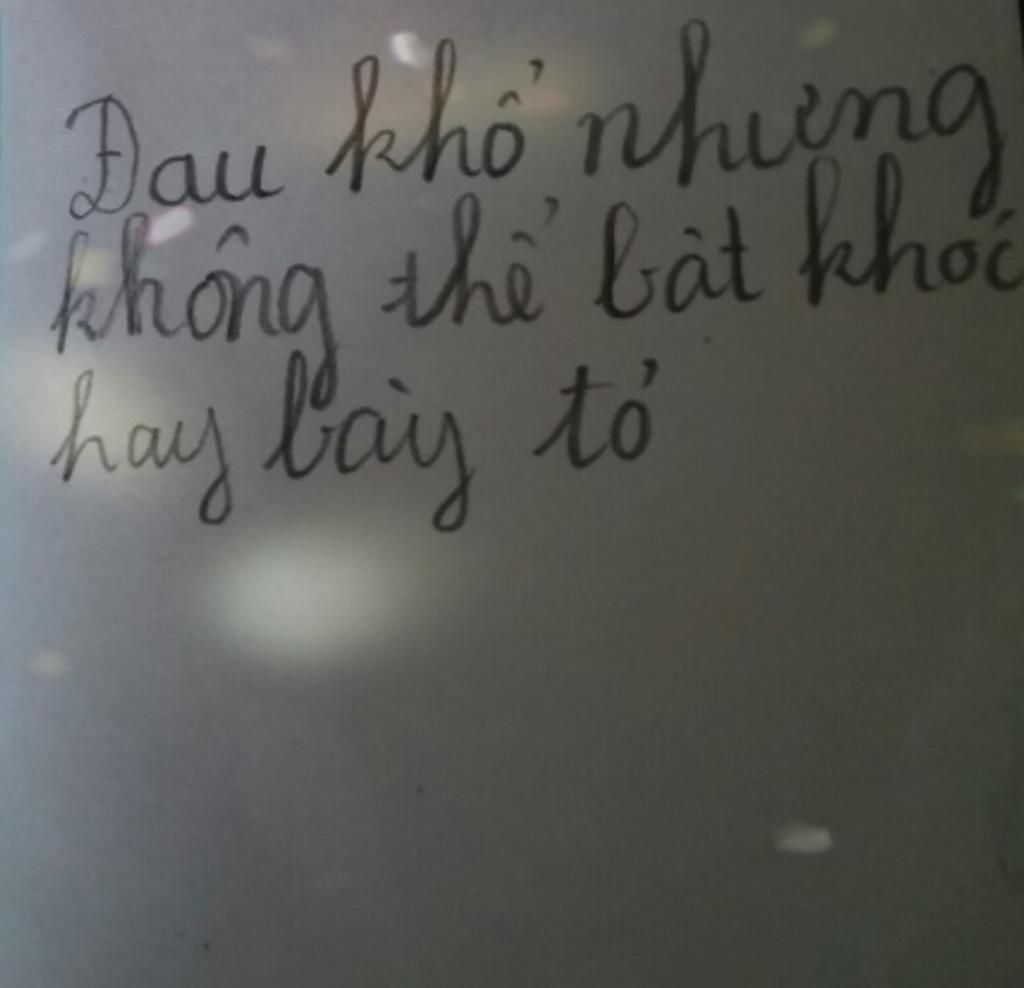 Đau khổ nhưng
không thể bật khóc
hay bày tỏ